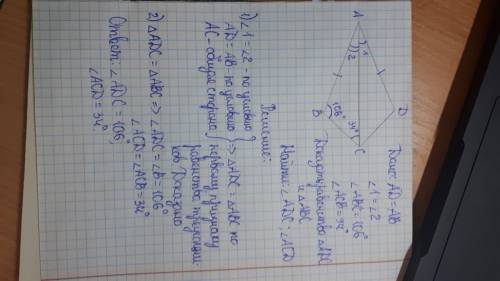 Дано: AD=AB
∠1=∠2
∠ABC=106°
∠ACB=34°
Доказать: равенство △ADC
и △ABC
Найти: ∠ADC; ∠ACD
A
1
2
D
B
106°
34°
C
Решение:
1) ∠1=∠2 - по условию
AD=AB - по условию
AC - общая сторона
} => △ADC=△ABC по
первому признаку
равенства треугольни-
ков. Доказано
2) △ADC=△ABC => ∠ADC=∠B=106°
∠ACD=∠ACB=34°
Ответ: ∠ADC=106°,
∠ACD=34°